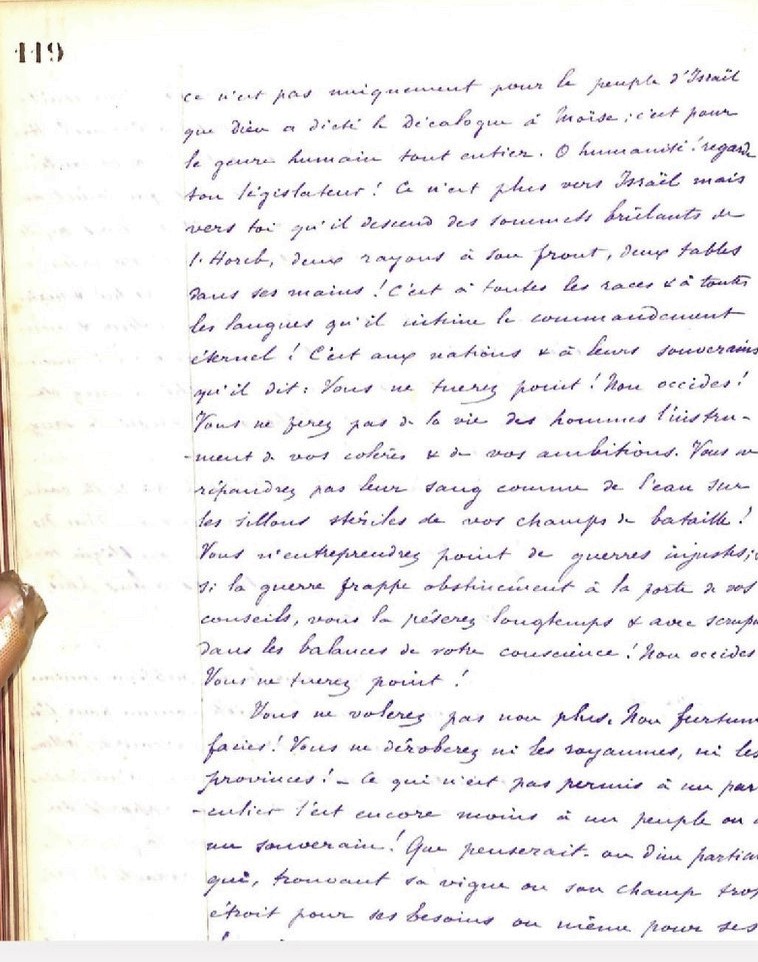 119
ce n'est pas uniquement pour le peuple d'Israël
que Dieu a dicté le Décalogue à Moïse; c'est pour
le genre humain tout entier. O humanité! regarde
ton législateur! Ce n'est plus vers Israël mais
vers toi qu'il descend des sommets brûlants de
l'Horeb, deux rayons à son front, deux tables
dans ses mains! C'est à toutes les races & à toutes
les langues qu'il intime le commandement
éternel! C'est aux nations & à leurs souverains
qu'il dit: Vous ne tuerez point! Non occides!
Vous ne ferez pas de la vie des hommes l'instru-
-ment de vos colères & de vos ambitions. Vous ne
répandrez pas leur sang comme de l'eau sur
les sillons stériles de vos champs de bataille!
Vous n'entreprendrez point de guerres injustes;
si la guerre frappe obstinément à la porte de vos
conseils, vous la pèserez longtemps & avec scrupu
dans les balances de votre conscience! Non occides
Vous ne tuerez point!
Vous ne volerez pas non plus. Non furtum
facies! Vous ne déroberez ni les royaumes, ni les
provinces! – Ce qui n'est pas permis à un par
-culier l'est encore moins à un peuple ou
un souverain! Que penserait-on d'un particu
qui, trouvant sa vigne ou son champ trop
étroit pour ses besoins ou même pour ses